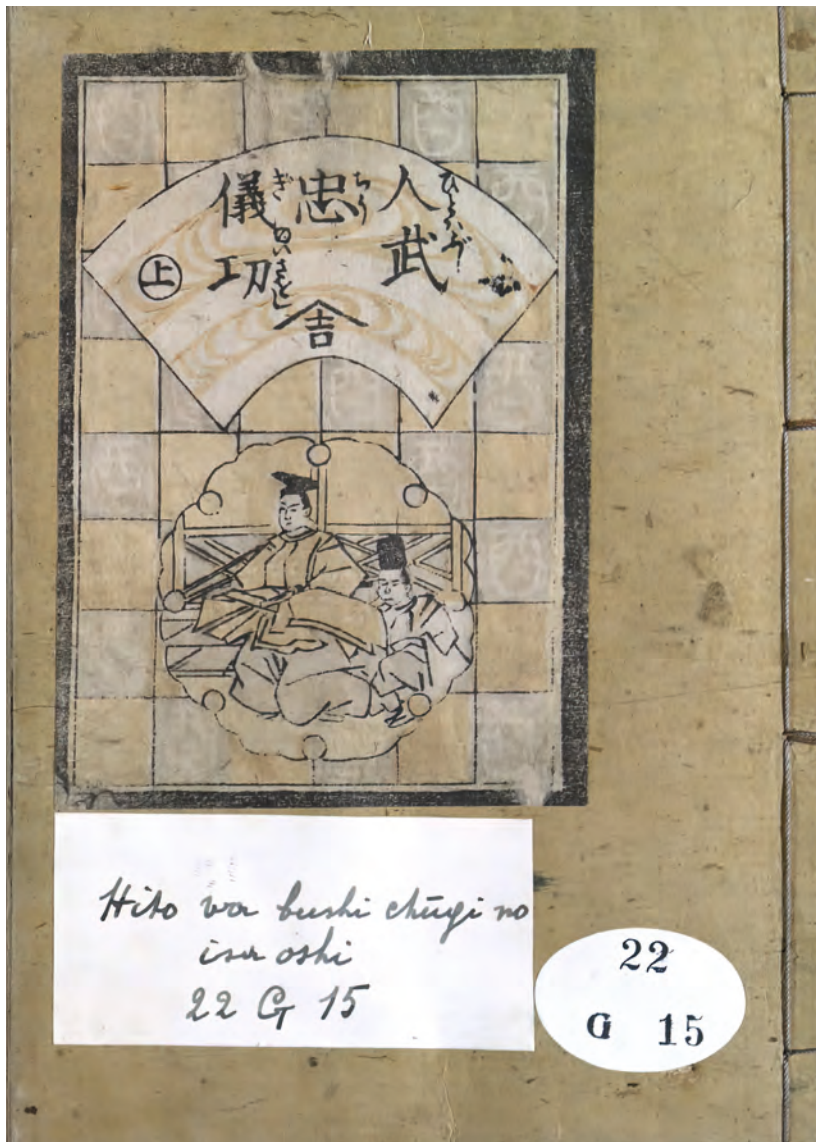 人武
ひとハぶ
忠
ちう
儀功
ぎのいさをし
上
吉
Hito wa bushi chūgi no
isa oshi
22 G 15
22
G 15